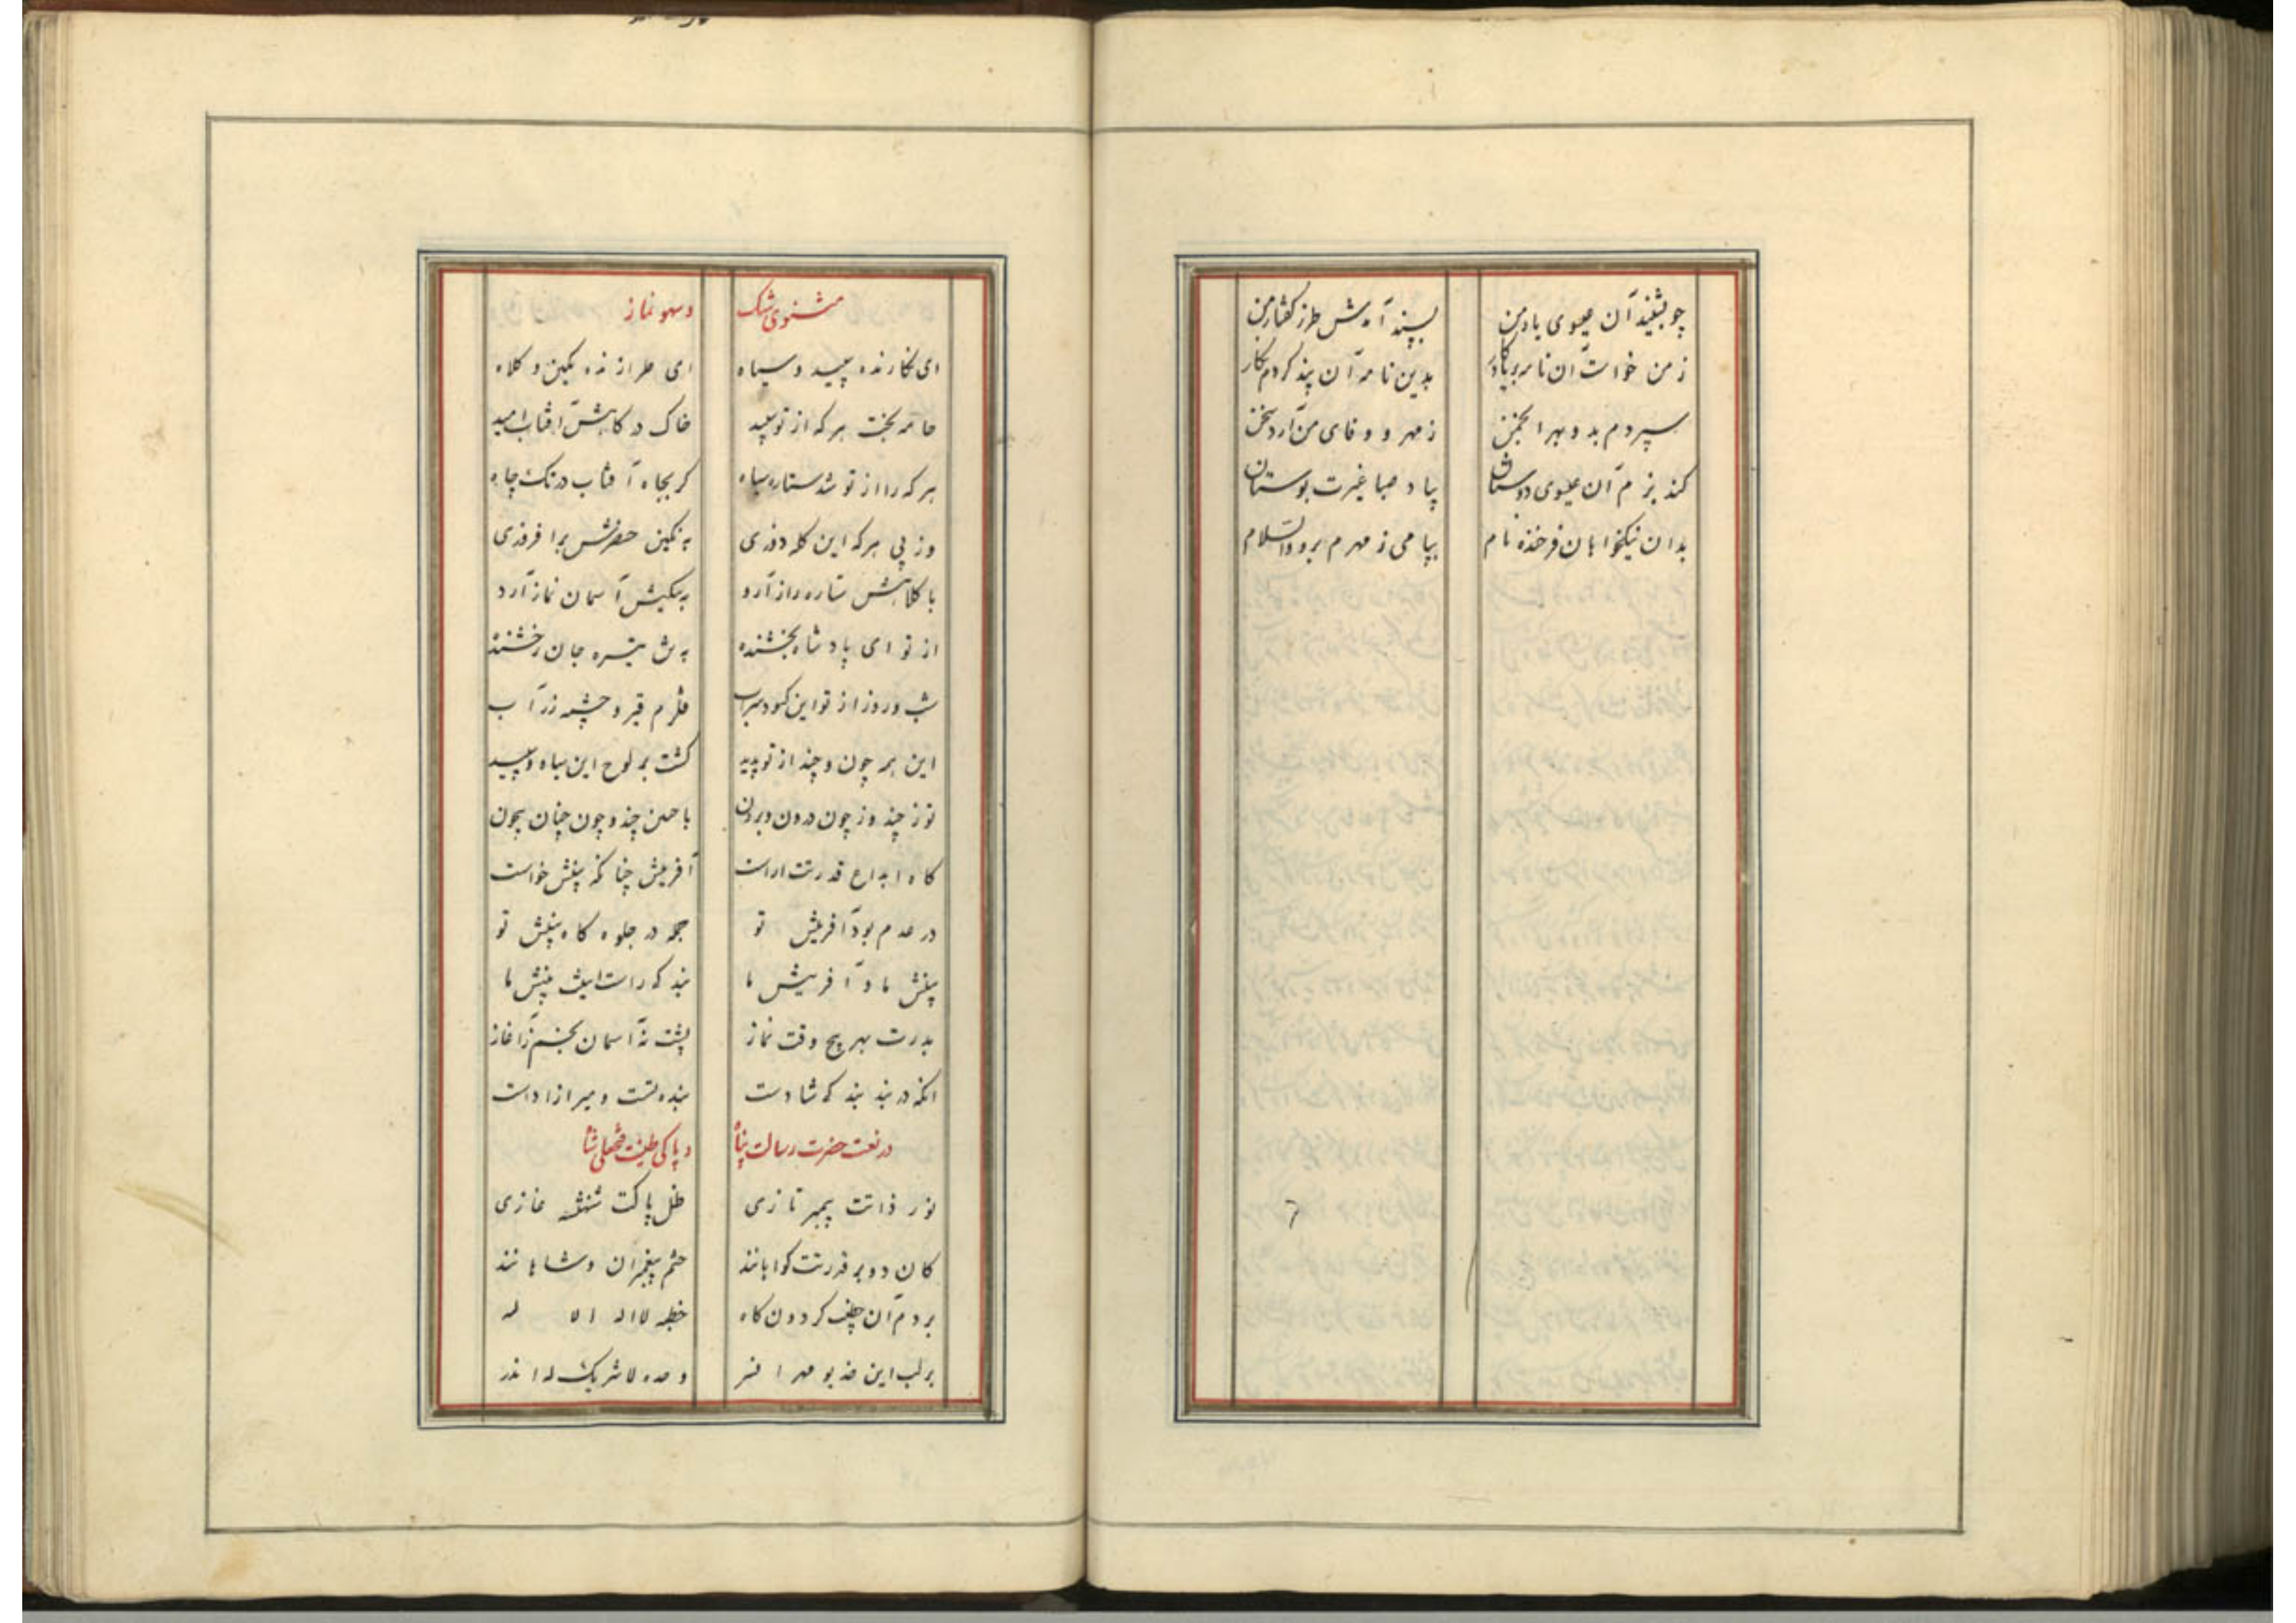 چو بشنید آن عیسوی یاد من پسند آمدش طرز گفتار من
ز من خواست آن نامه بر یادگار بدین نامه آن پند کردم نگار
سپردم بدو بهر انجمن ز مهر و وفای من آرد سخن
کند بزم آن عیسوی دوستان بیاد صبا غیرت بوستان
بدان نیکخواهان فرخنده نام پیامی ز مهرم برد والسلام
مثنوی شک و سهو نماز
ای نگارنده سپید و سیاه ای طرازنده نگین و کلاه
جامه بخت هر که از تو سپید خاک درگاهش آفتاب امید
هر که را از تو شد ستاره سیاه گر بجاه آفتاب در تک چاه
وز پی هر که این کله دوزی به نگین حضرتش برافروزی
با کلاهش ستاره راز آرد به نگینش آسمان نماز آرد
از تو ای پادشاه بخشنده تیره جان رخشنده
شب و روز از تو این کبود سراب قلزم قیر و چشمه زرآب
این همه چون و چند از تو پدید گشت بر لوح این سیاه و سپید
تو ز چند و ز چون درون و برون با چنین چند و چون چنان بیچون
گاه ابداع قدرتت آراست آفرینش چنانکه بینش خواست
در عدم بود آفرینش تو جمله در جلوه گاه بینش تو
بینش ما و آفرینش ما بینش ما
بدرت بهر پنج وقت نماز پشت نه آسمان بخم ز آغاز
آنکه در بند بندگی شادست بنده تست و میر آزادست
در نعت حضرت رسالت پناه و پاکی طینت فتحعلی شاه
نور ذاتت پیمبر تازی ظل پاکت شهنشه غازی
کان دو بر قدرتت گواهانند ختم پیغمبران و شاهانند
بر در آن گردون گاه خطبه لا اله الا له
بر لب این خدیو مهر افسر وحده لا شریک له اندر